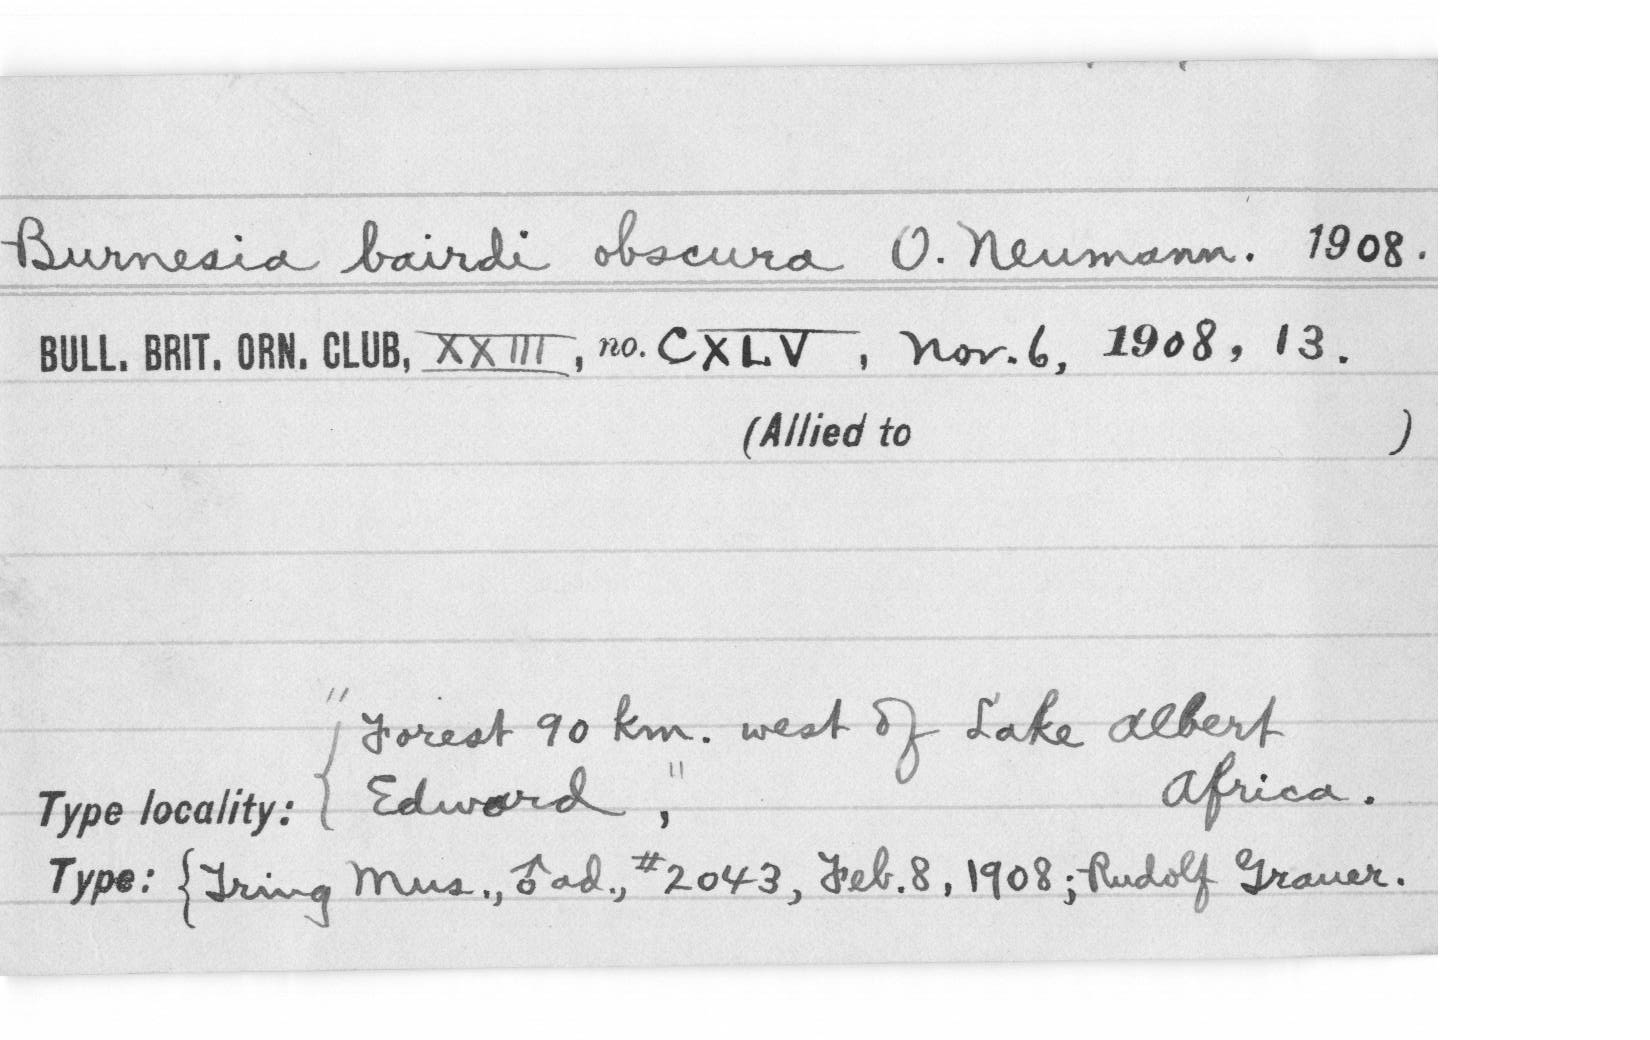 Burnesia bairdi obscura O. Neumann. 1908.
BULL. BRIT. ORN. CLUB, XXIII, no. CXLV, Nov. 6, 1908, 13.
(Allied to )
"Forest 90 km. west of Lake Albert
Type locality: { Edward," Africa.
Type: {Tring Mus., ♂ ad., #2043, Feb. 8, 1908; Rudolf Grauer.